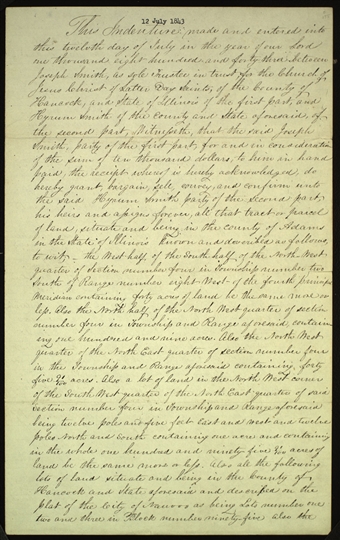 12 July 1843
This Indenture, made and entered into
this twelveth day of July in the year of our Lord
one thousand eight hundred and forty three between
Joseph Smith, as sole trustee in trust for the Church of
Jesus Christ of Latter Day Saints, of the County of
Hancock, and State of Illinois of the first part, and
Hyrum Smith of the County and State aforesaid, of
the second part, Witnesseth, that the said Joseph
Smith, party of the first part, for and in consideration
of the sum of ten thousand dollars, to him in hand
paid, the receipt whereof is hereby acknowledged, do
hereby grant, bargain, sell, convey, and confirm unto
the said Hyrum Smith party of the second part,
his heirs and assigns forever, all that tract or parcel
of land, situate and being in the county of Adams
in the State of Illinois Known and described as follows,
to wit, the West half of the South half of the North West
quarter of section number four in Township number five
South of Range number eight West of the fourth principal
Meridian containing forty acres of land be the same more or
less. Also the North half of the North West quarter of section
number four in Township and Range aforesaid, contain
ing one hundred and nine acres. Also the North West
quarter of the North East quarter of section number four
in the Township and Range aforesaid containing, forty
five acres. Also a lot of land in the North West corner
of the South West quarter of the North East quarter of said
section number four in Township and Range aforesaid
being twelve poles and five feet East and west and twelve
poles North and South containing one acre and containing
in the whole one hundred and ninety five acres of
land be the same more or less. Also all the following
lots of land situate and being in the County of
Hancock and State aforesaid and described on the
plat of the City of Nauvoo as being Lots number one
two and three in Block number ninety-five also the